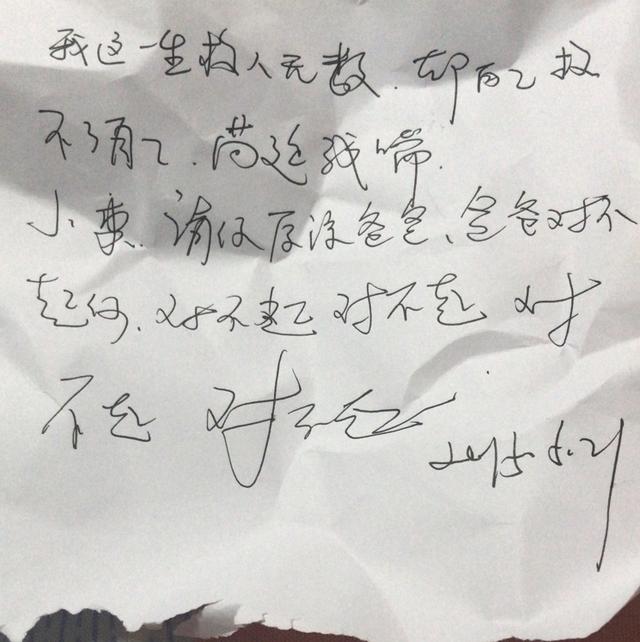 我这一生救人无数.却自己救
不了自己.
小 请你原谅爸爸、爸爸对不
起你.对不起 对不起 对
不起 对不起
2015.5.21